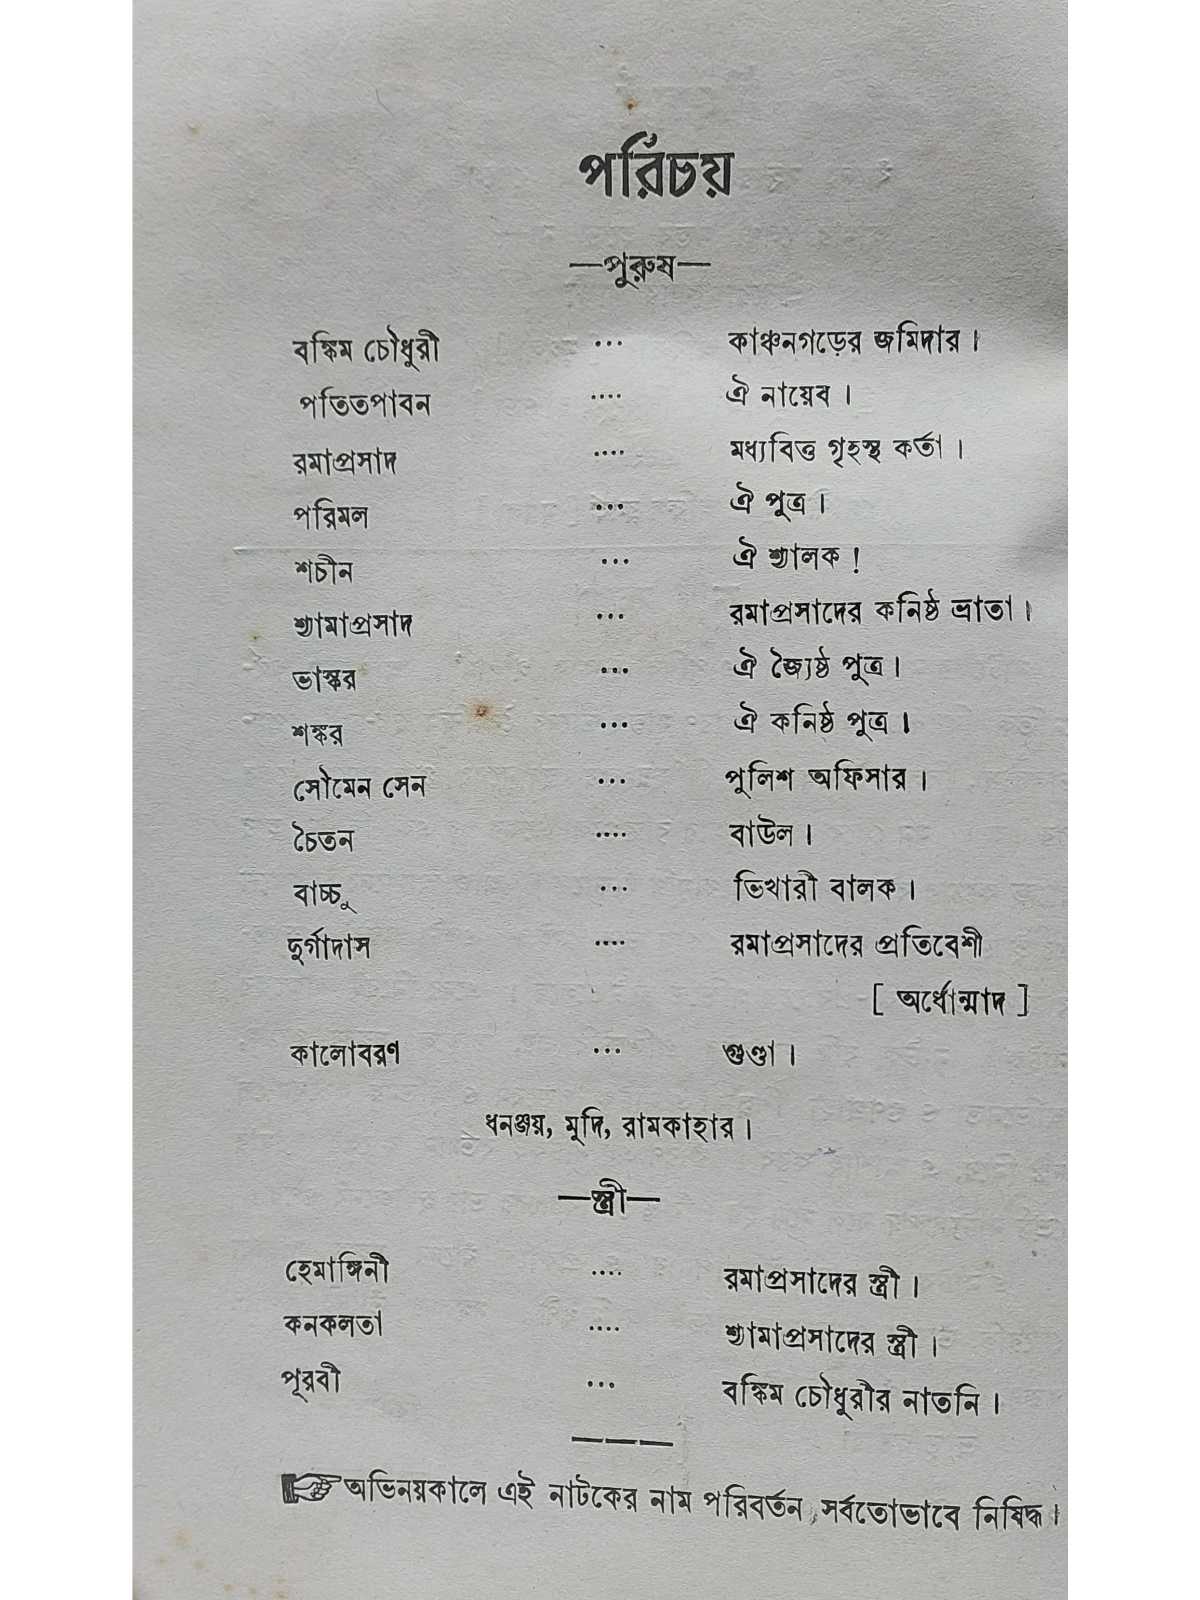 পরিচয়
—পুরুষ—
বঙ্কিম চৌধুরী ... কাঞ্চনগড়ের জমিদার।
পতিতপাবন .... ঐ নায়েব।
রমাপ্রসাদ .... মধ্যবিত্ত গৃহস্থ কর্তা।
পরিমল ... ঐ পুত্র।
শচীন ... ঐ শ্যালক!
শ্যামাপ্রসাদ ... রমাপ্রসাদের কনিষ্ঠ ভ্রাতা।
ভাস্কর ... ঐ জ্যৈষ্ঠ পুত্র।
শঙ্কর ... ঐ কনিষ্ঠ পুত্র।
সৌমেন সেন ... পুলিশ অফিসার।
চৈতন .... বাউল।
বাচ্চু ... ভিখারী বালক।
দুর্গাদাস .... রমাপ্রসাদের প্রতিবেশী
[ অর্ধোন্মাদ ]
কালোবরণ ... গুণ্ডা।
ধনঞ্জয়, মুদি, রামকাহার।
—স্ত্রী—
হেমাঙ্গিনী .... রমাপ্রসাদের স্ত্রী।
কনকলতা .... শ্যামাপ্রসাদের স্ত্রী।
পূরবী ... বঙ্কিম চৌধুরীর নাতনি।
———
☞ অভিনয়কালে এই নাটকের নাম পরিবর্তন, সর্বতোভাবে নিষিদ্ধ।